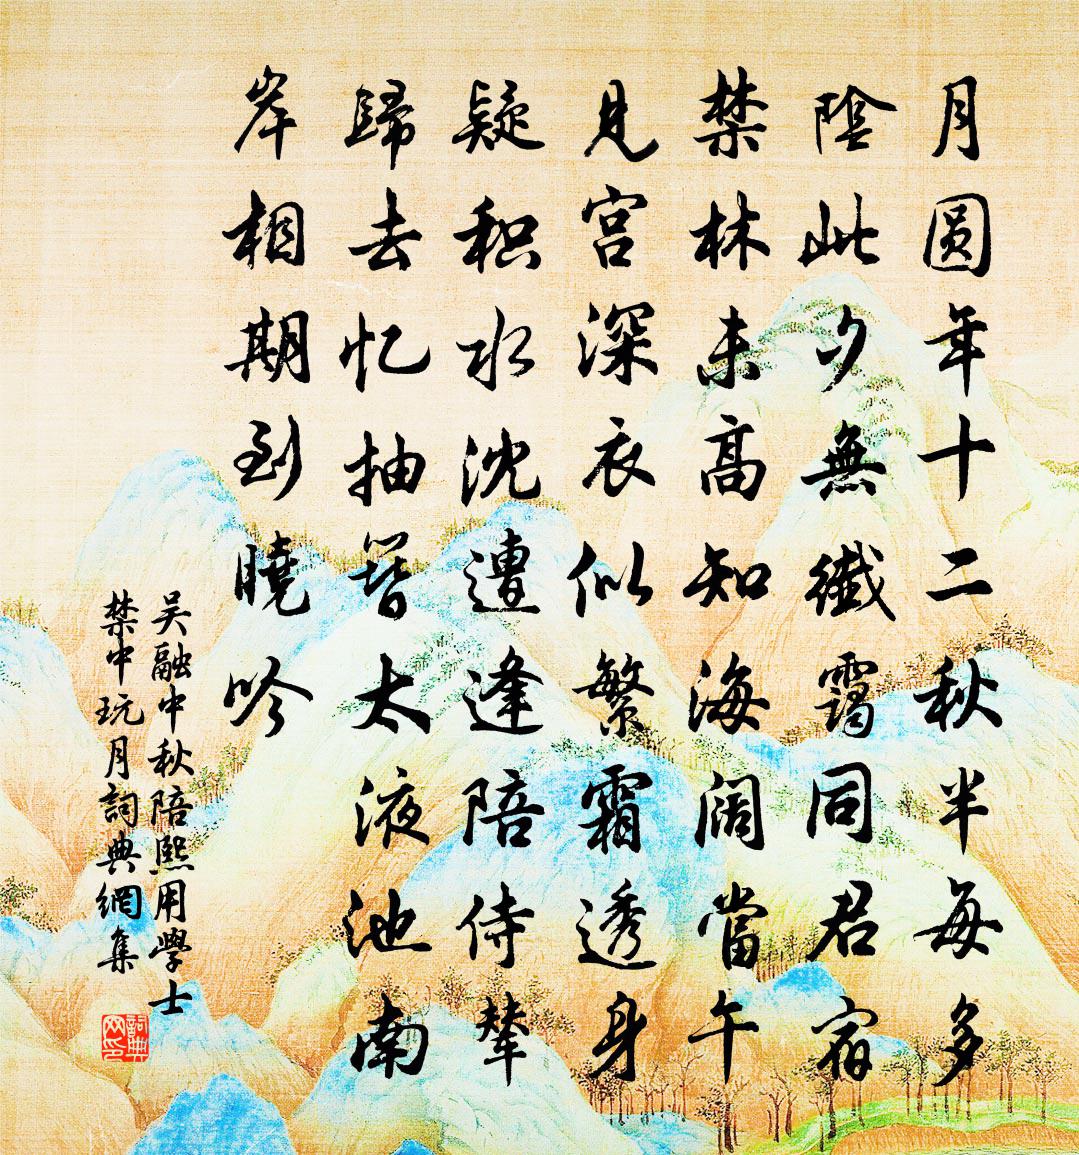 月圆年十二秋半每多
陰此夕無纖靄同君宿
禁林未高知海阔當午
見宫深衣似繁霜透身
疑积水沈遭逢陪侍輦
歸去忆抽簪太液池南
岸相期到曉吟
吴融中秋陪熙用學士
禁中玩月詞典網集
詞典
网印